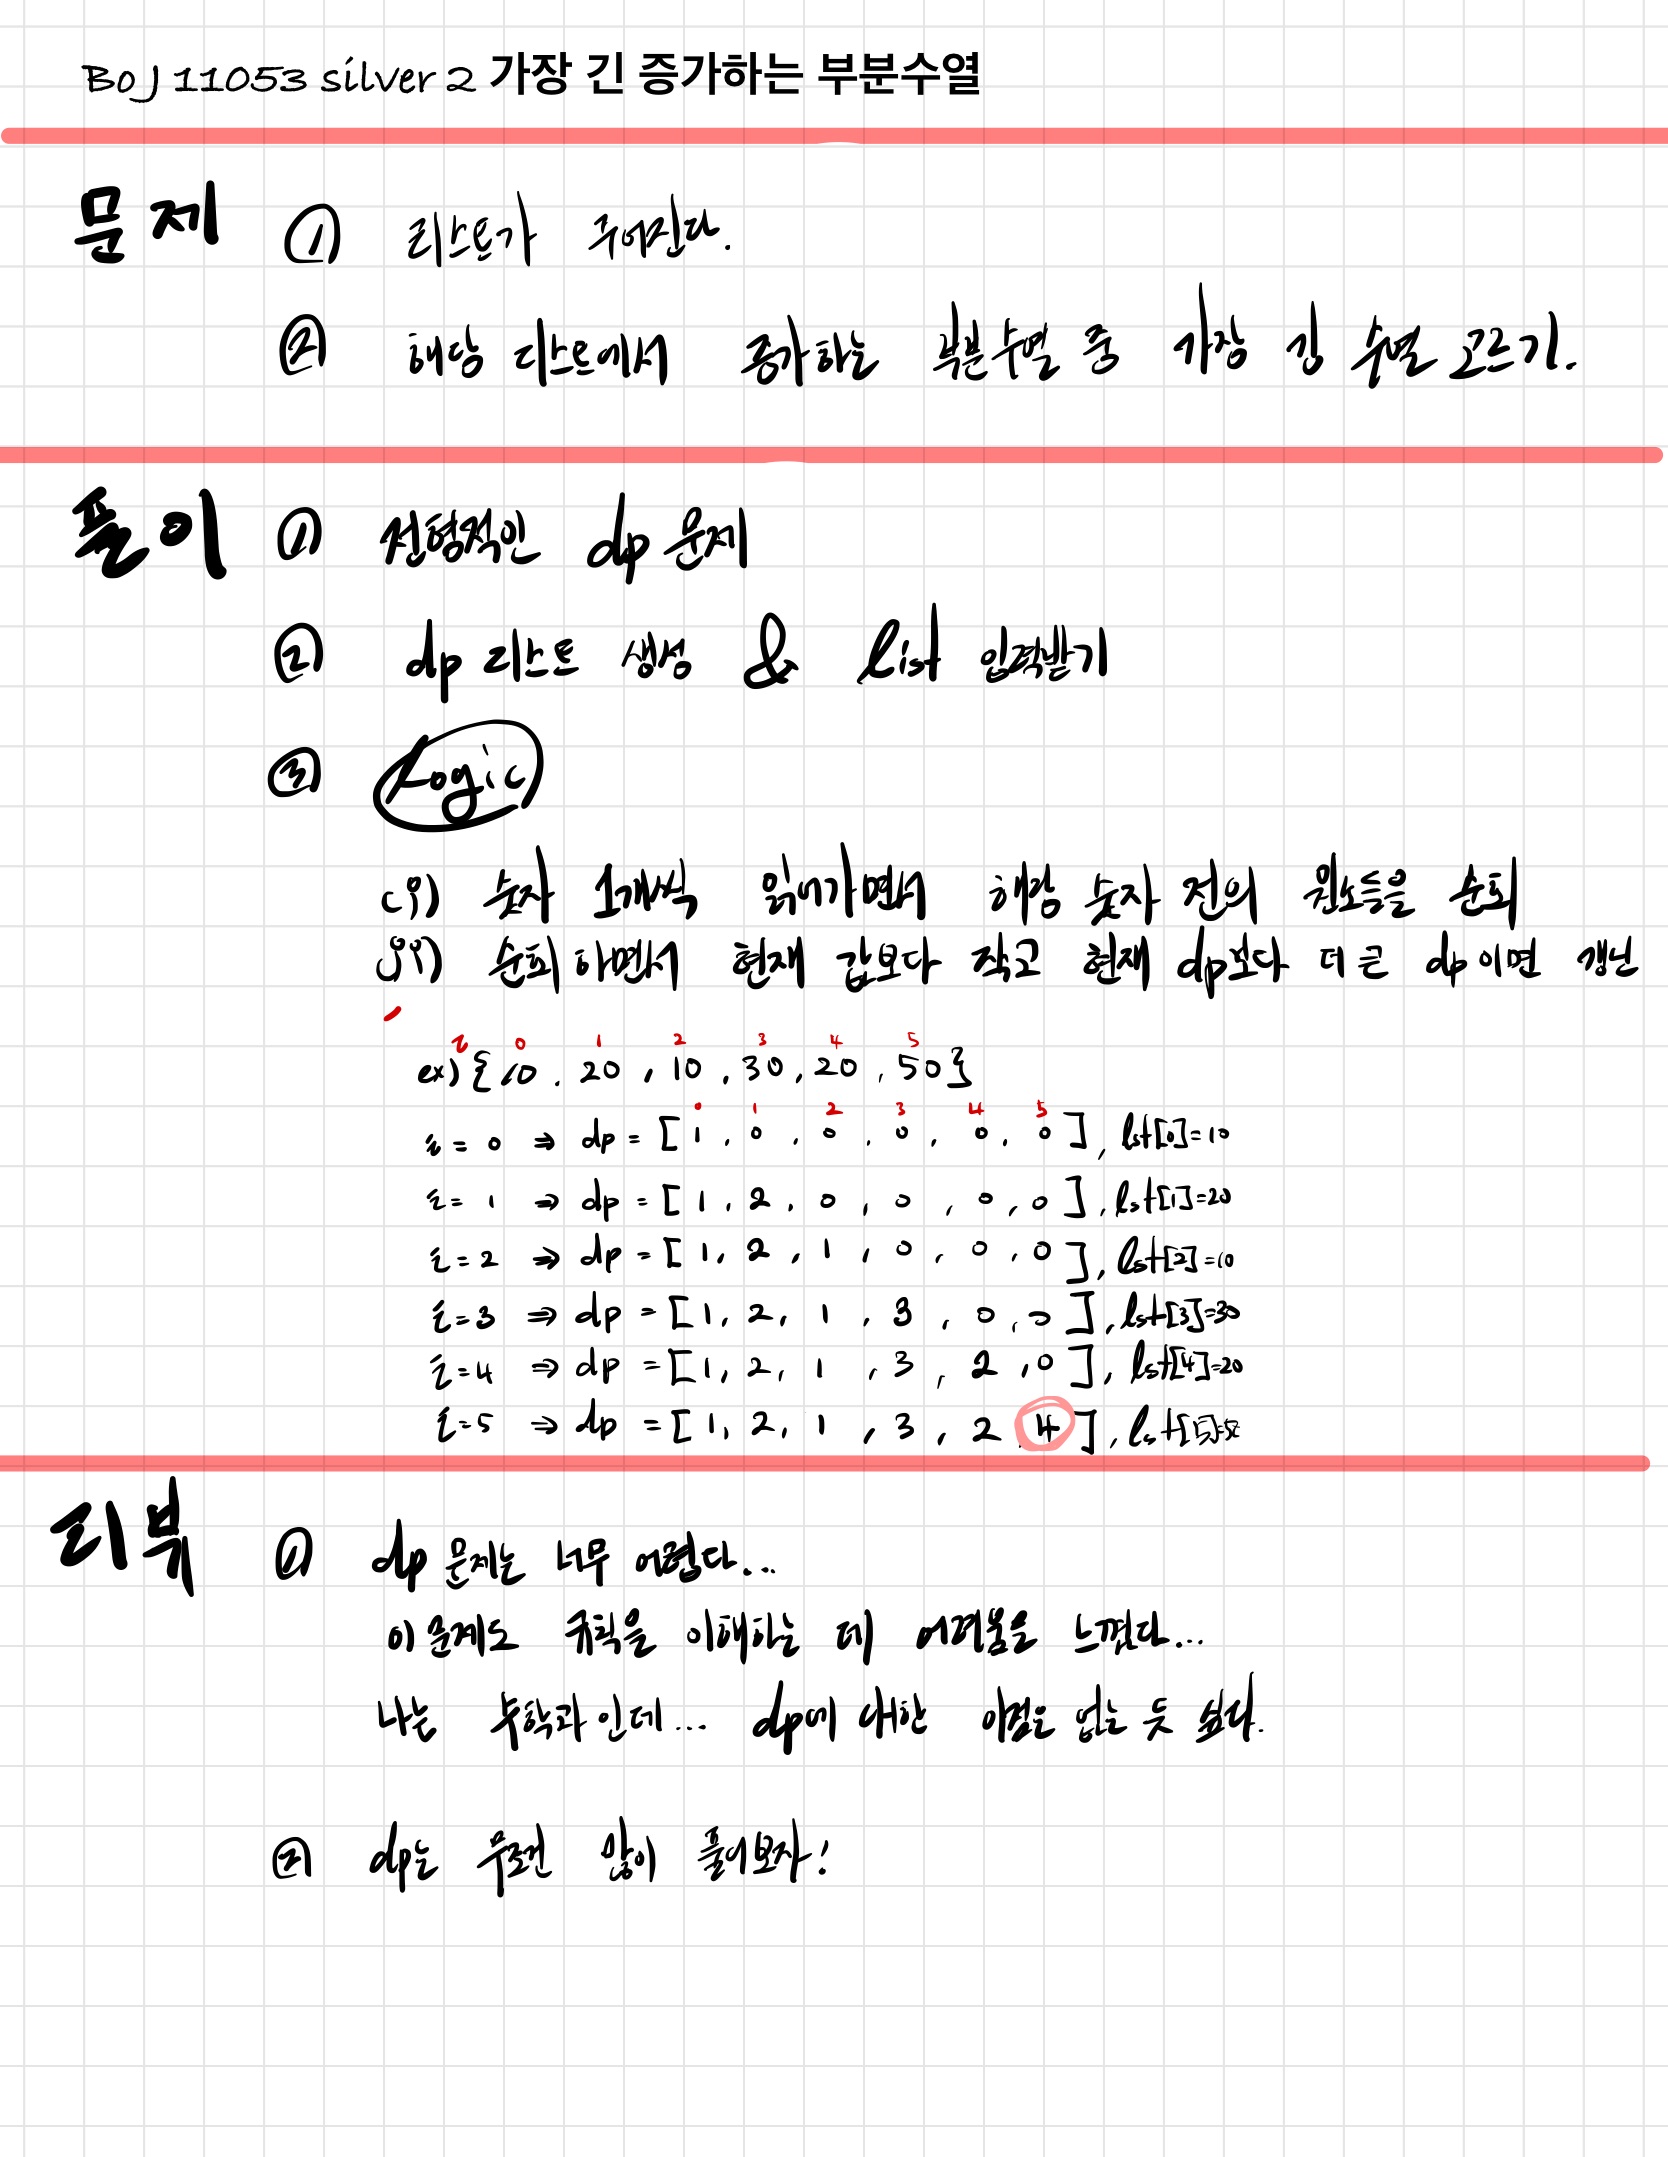 BOJ 11053 silver 2 가장 긴 증가하는 부분수열
문제 ① 리스트가 주어진다.
② 해당 리스트에서 증가하는 부분수열 중 가장 긴 수열 고르기.
풀이 ① 전형적인 dp 문제
② dp 리스트 생성 & list 입력받기
③ Logic
i) 숫자 1개씩 읽어가면서 해당 숫자 전의 원소들을 순회
ii) 순회하면서 현재 값보다 작고 현재 dp보다 더 큰 dp이면 갱신
i 0 1 2 3 4 5
ex) {10, 20, 10, 30, 20, 50}
0 1 2 3 4 5
i = 0 ⇒ dp = [1, 0, 0, 0, 0, 0], lst[0]=10
i = 1 ⇒ dp = [1, 2, 0, 0, 0, 0], lst[1]=20
i = 2 ⇒ dp = [1, 2, 1, 0, 0, 0], lst[2]=10
i = 3 ⇒ dp = [1, 2, 1, 3, 0, 0], lst[3]=30
i = 4 ⇒ dp = [1, 2, 1, 3, 2, 0], lst[4]=20
i = 5 ⇒ dp = [1, 2, 1, 3, 2, 4], lst[5]=50
리뷰 ① dp 문제는 너무 어렵다...
이 문제도 규칙을 이해하는 데 어려움을 느꼈다...
나는 수학과인데... dp에 대한 이점은 없는 듯 싶다.
② dp는 무조건 많이 풀어보자!